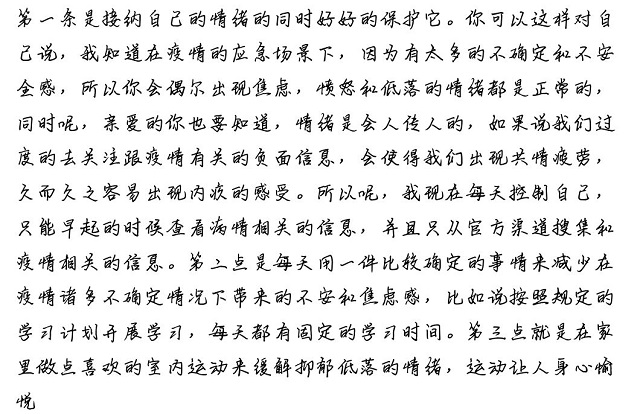 第一条是接纳自己的情绪的同时好好的保护它。你可以这样对自
己说，我知道在疫情的应急场景下，因为有太多的不确定和不安
全感，所以你会偶尔出现焦虑，愤怒和低落的情绪都是正常的，
同时呢，亲爱的你也要知道，情绪是会人传人的，如果说我们过
度的去关注跟疫情有关的负面信息，会使得我们出现共情疲劳，
久而久之容易出现内疚的感受。所以呢，我现在每天控制自己，
只能早起的时候查看病情相关的信息，并且只从官方渠道搜集和
疫情相关的信息。第二点是每天用一件比较确定的事情来减少在
疫情诸多不确定情况下带来的不安和焦虑感，比如说按照规定的
学习计划开展学习，每天都有固定的学习时间。第三点就是在家
里做点喜欢的室内运动来缓解抑郁低落的情绪，运动让人身心愉
悦